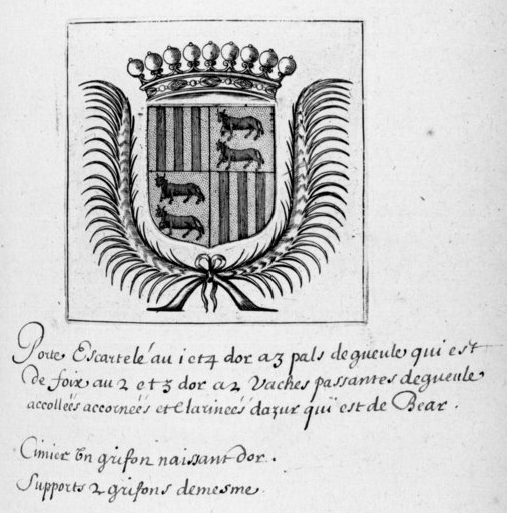 Porte Escartelé au 1 et 4 dor a 3 pals de gueule qui est
de foix au 2 et 3 dor a 2 vaches passantes de gueule
accolleés accorneés et clarineés dazur qui est de Bear.
Cimier Vn grifon naissant dor.
Supports 2 grifons de mesme